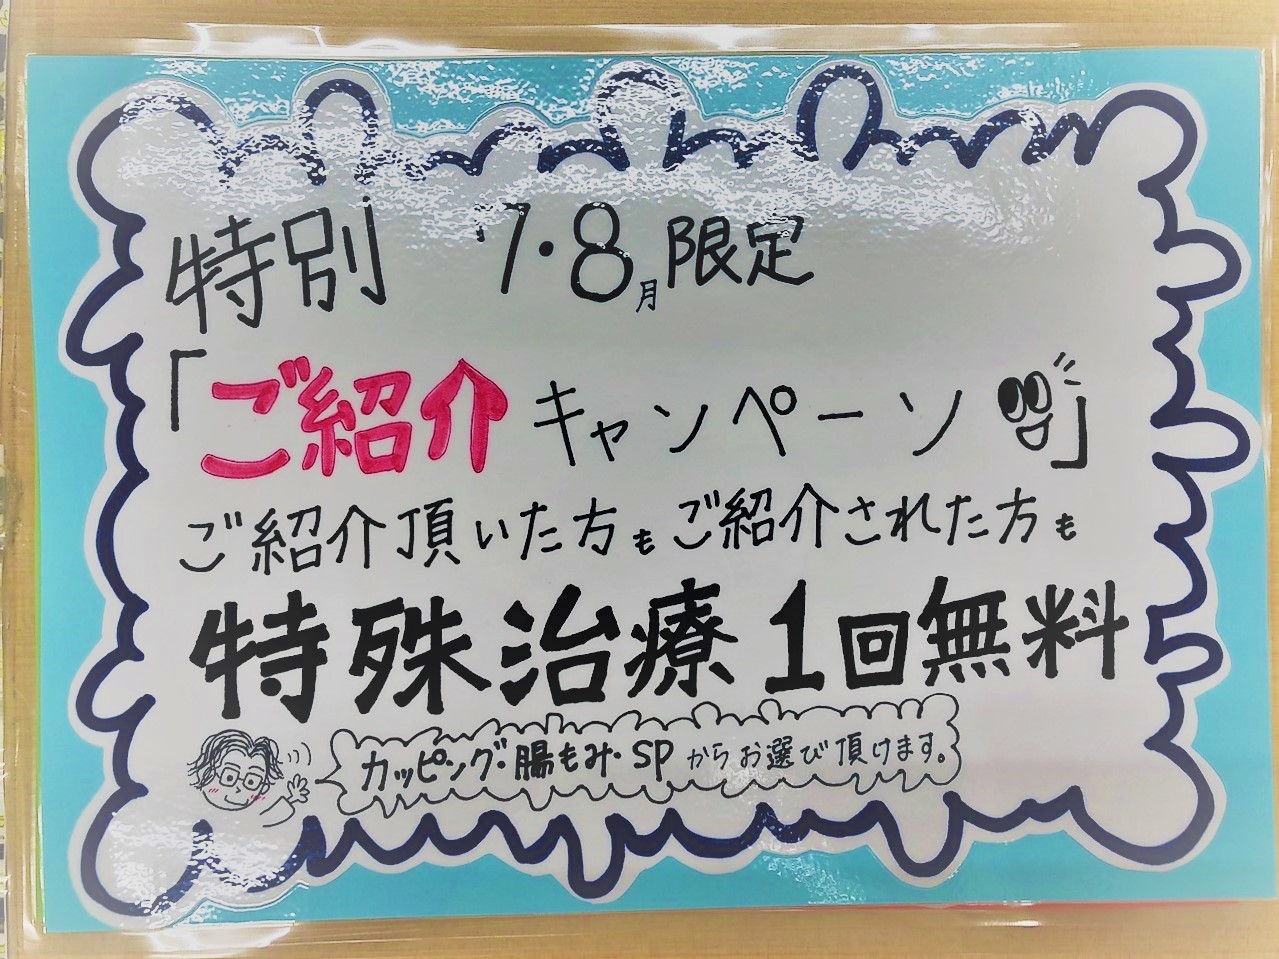 特別 7・8月限定
「ご紹介キャンペーン」
ご紹介頂いた方もご紹介された方も
特殊治療1回無料
カッピング・腸もみ・SPからお選び頂けます。